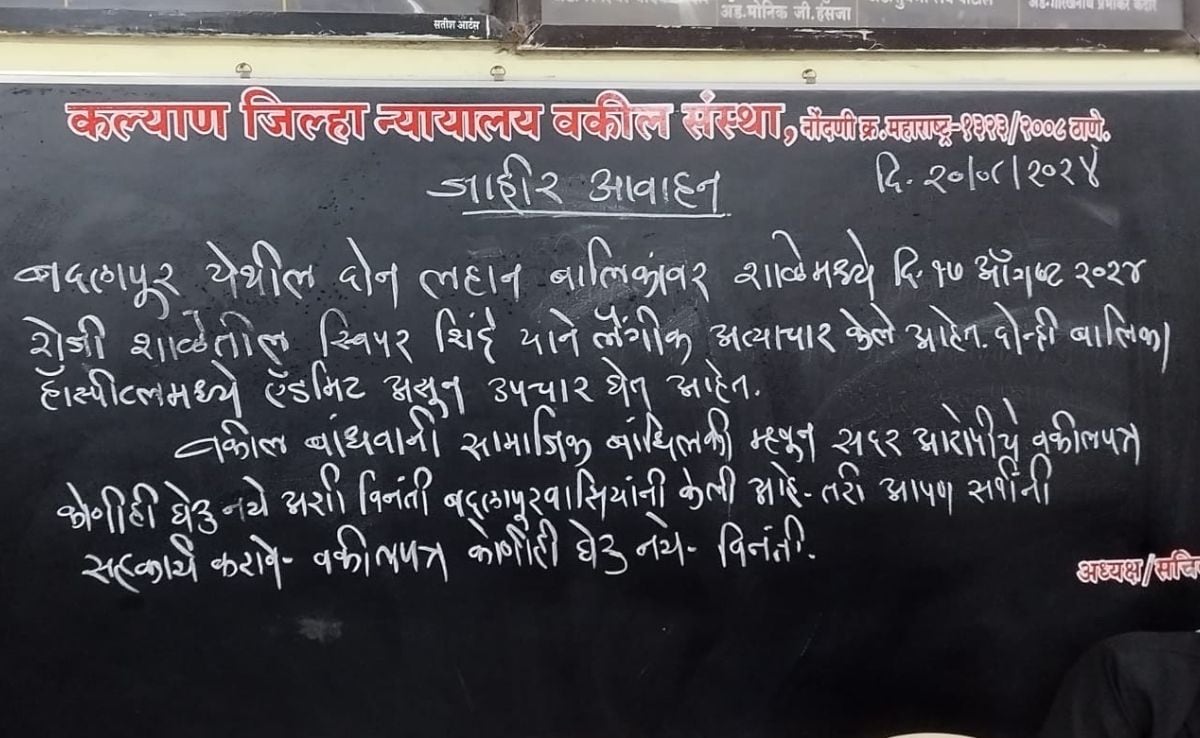 सतीश आर्टस
अॅड.मोनिक जी.हंसजा
कल्याण जिल्हा न्यायालय वकील संस्था, नोंदणी क्र.महाराष्ट्र-१३२३/२००८ ठाणे.
जाहीर आवाहन
दि. २०/०८/२०२४
बदलापूर येथील दोन लहान बालिकांवर शाळेमध्ये दि. १७ ऑगष्ट २०२४
रोजी शाळेतील स्विपर शिंदे याने लैंगीक अत्याचार केले आहेत. दोन्ही बालिका
हॉस्पीटलमध्ये ऍडमिट असून उपचार घेत आहेत.
वकील बांधवानी सामाजिक बांधिलकी म्हणून सदर आरोपीचे वकीलपत्र
कोणीही घेऊ नये अशी विनंती बदलापूरवासियांनी केली आहे- तरी आपण सर्वांनी
सहकार्य करावे- वकीलपत्र कोणीही घेऊ नये- विनंती.
अध्यक्ष/सचि